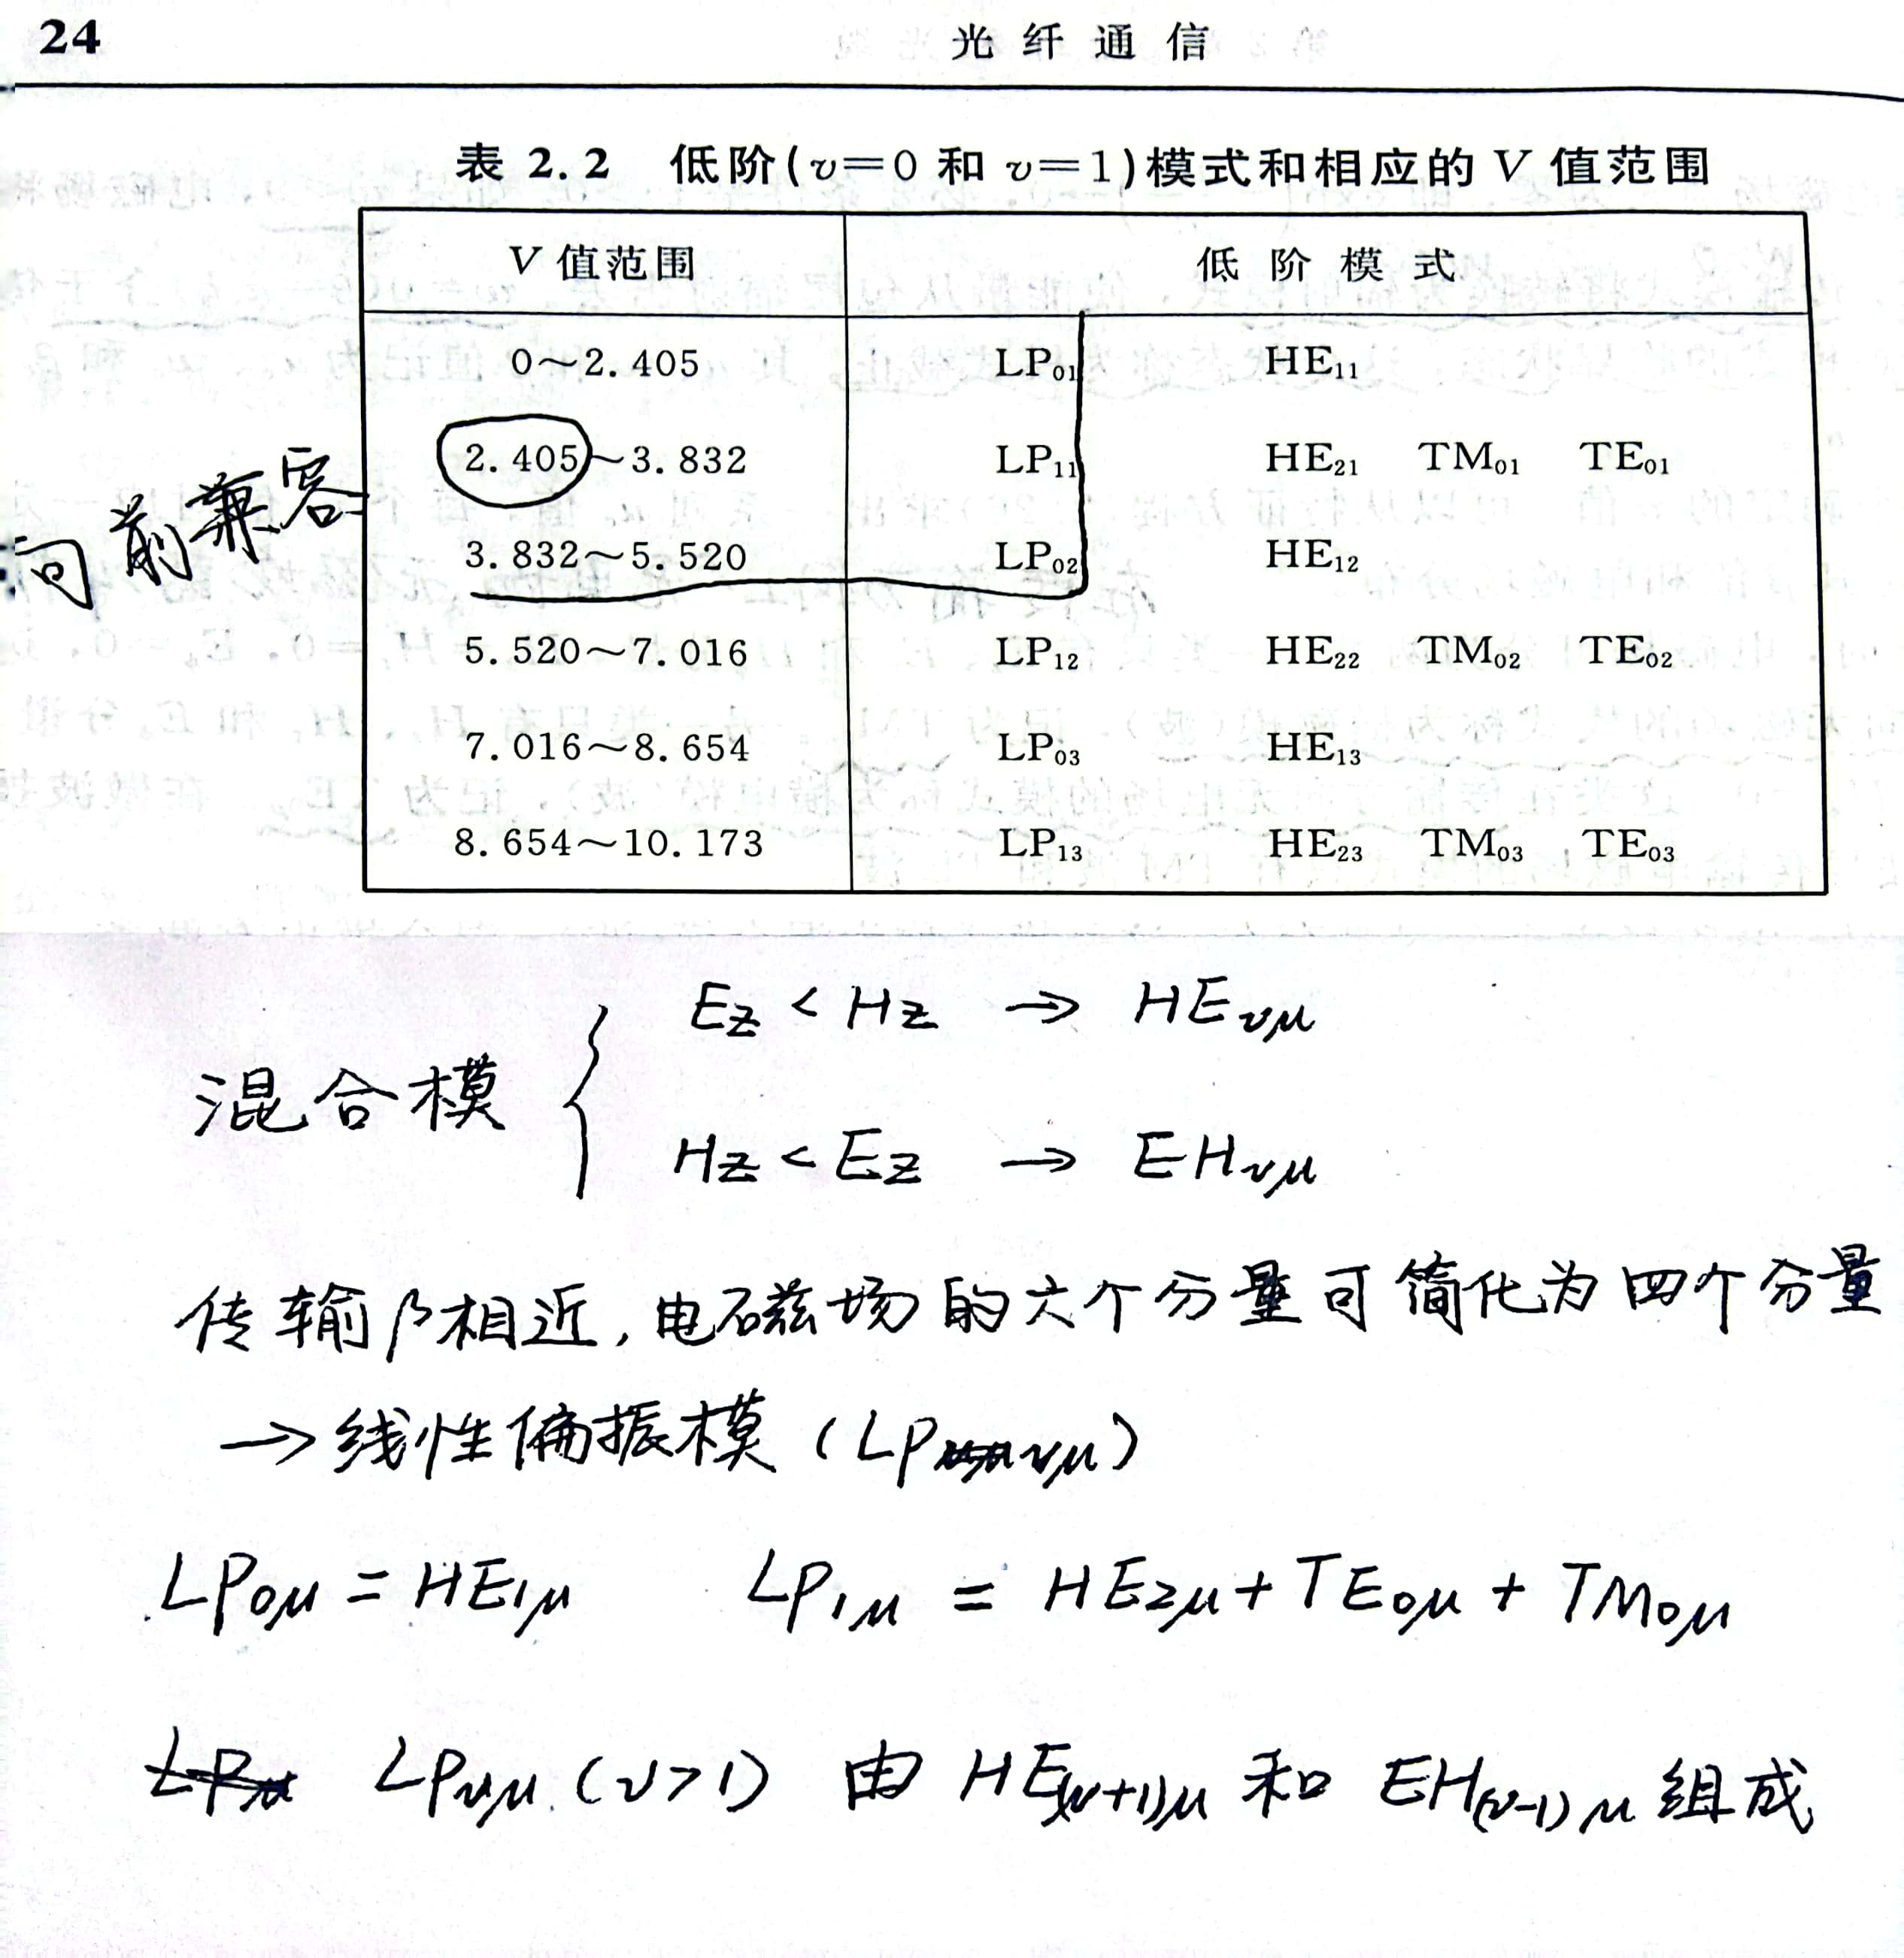 24 光纤通信
表 2.2 低阶(v=0 和 v=1)模式和相应的 V 值范围
V 值范围 低阶模式
0～2.405 LP₀₁ HE₁₁
2.405～3.832 LP₁₁ HE₂₁ TM₀₁ TE₀₁
向前兼容
3.832～5.520 LP₀₂ HE₁₂
5.520～7.016 LP₁₂ HE₂₂ TM₀₂ TE₀₂
7.016～8.654 LP₀₃ HE₁₃
8.654～10.173 LP₁₃ HE₂₃ TM₀₃ TE₀₃
Ez < Hz → HEvμ
混合模
Hz < Ez → EHvμ
传输β相近,电磁场的六个分量可简化为四个分量
→线性偏振模(LPvμ)
LP₀μ = HE₁μ LP₁μ = HE₂μ + TE₀μ + TM₀μ
LPvμ (v>1) 由 HE(v+1)μ 和 EH(v-1)μ 组成